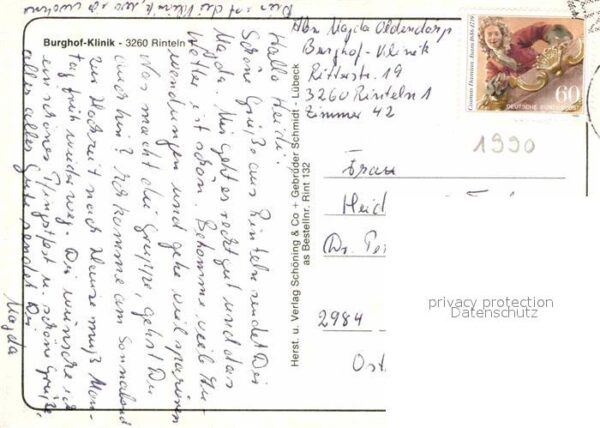 Burghof-Klinik - 3260 Rinteln
Abs. Magda Oldendorp
Burghof-Klinik
Ritterstr. 19
3260 Rinteln 1
Zimmer 42
Cosmas Damian Asam 1686-1739
60
DEUTSCHE BUNDESPOST
1990
Herst. u. Verlag Schöning & Co + Gebrüder Schmidt - Lübeck
as Bestellnr. Rint 132
Frau
Heid
Dr.
2984
Ost
privacy protection
Datenschutz
Hallo Heidi!
Schöne Grüße aus Rinteln sendet Dir
Magda. Mir geht es recht gut und das
Wetter ist schön. Bekomme viele An-
wendungen und gehe viel spazieren
Was macht die Gruppe, gehst Du
auch hin? Ich komme am Sonnabend
zur Hochzeit nach Hause muß Mon-
tag früh wieder weg. Dir wünsche ich
ein schönes Pfingstfest u. schöne Grüße,
alles alles Gute sendet Dir
Magda
Dies ist die Klinik wo ich wohne